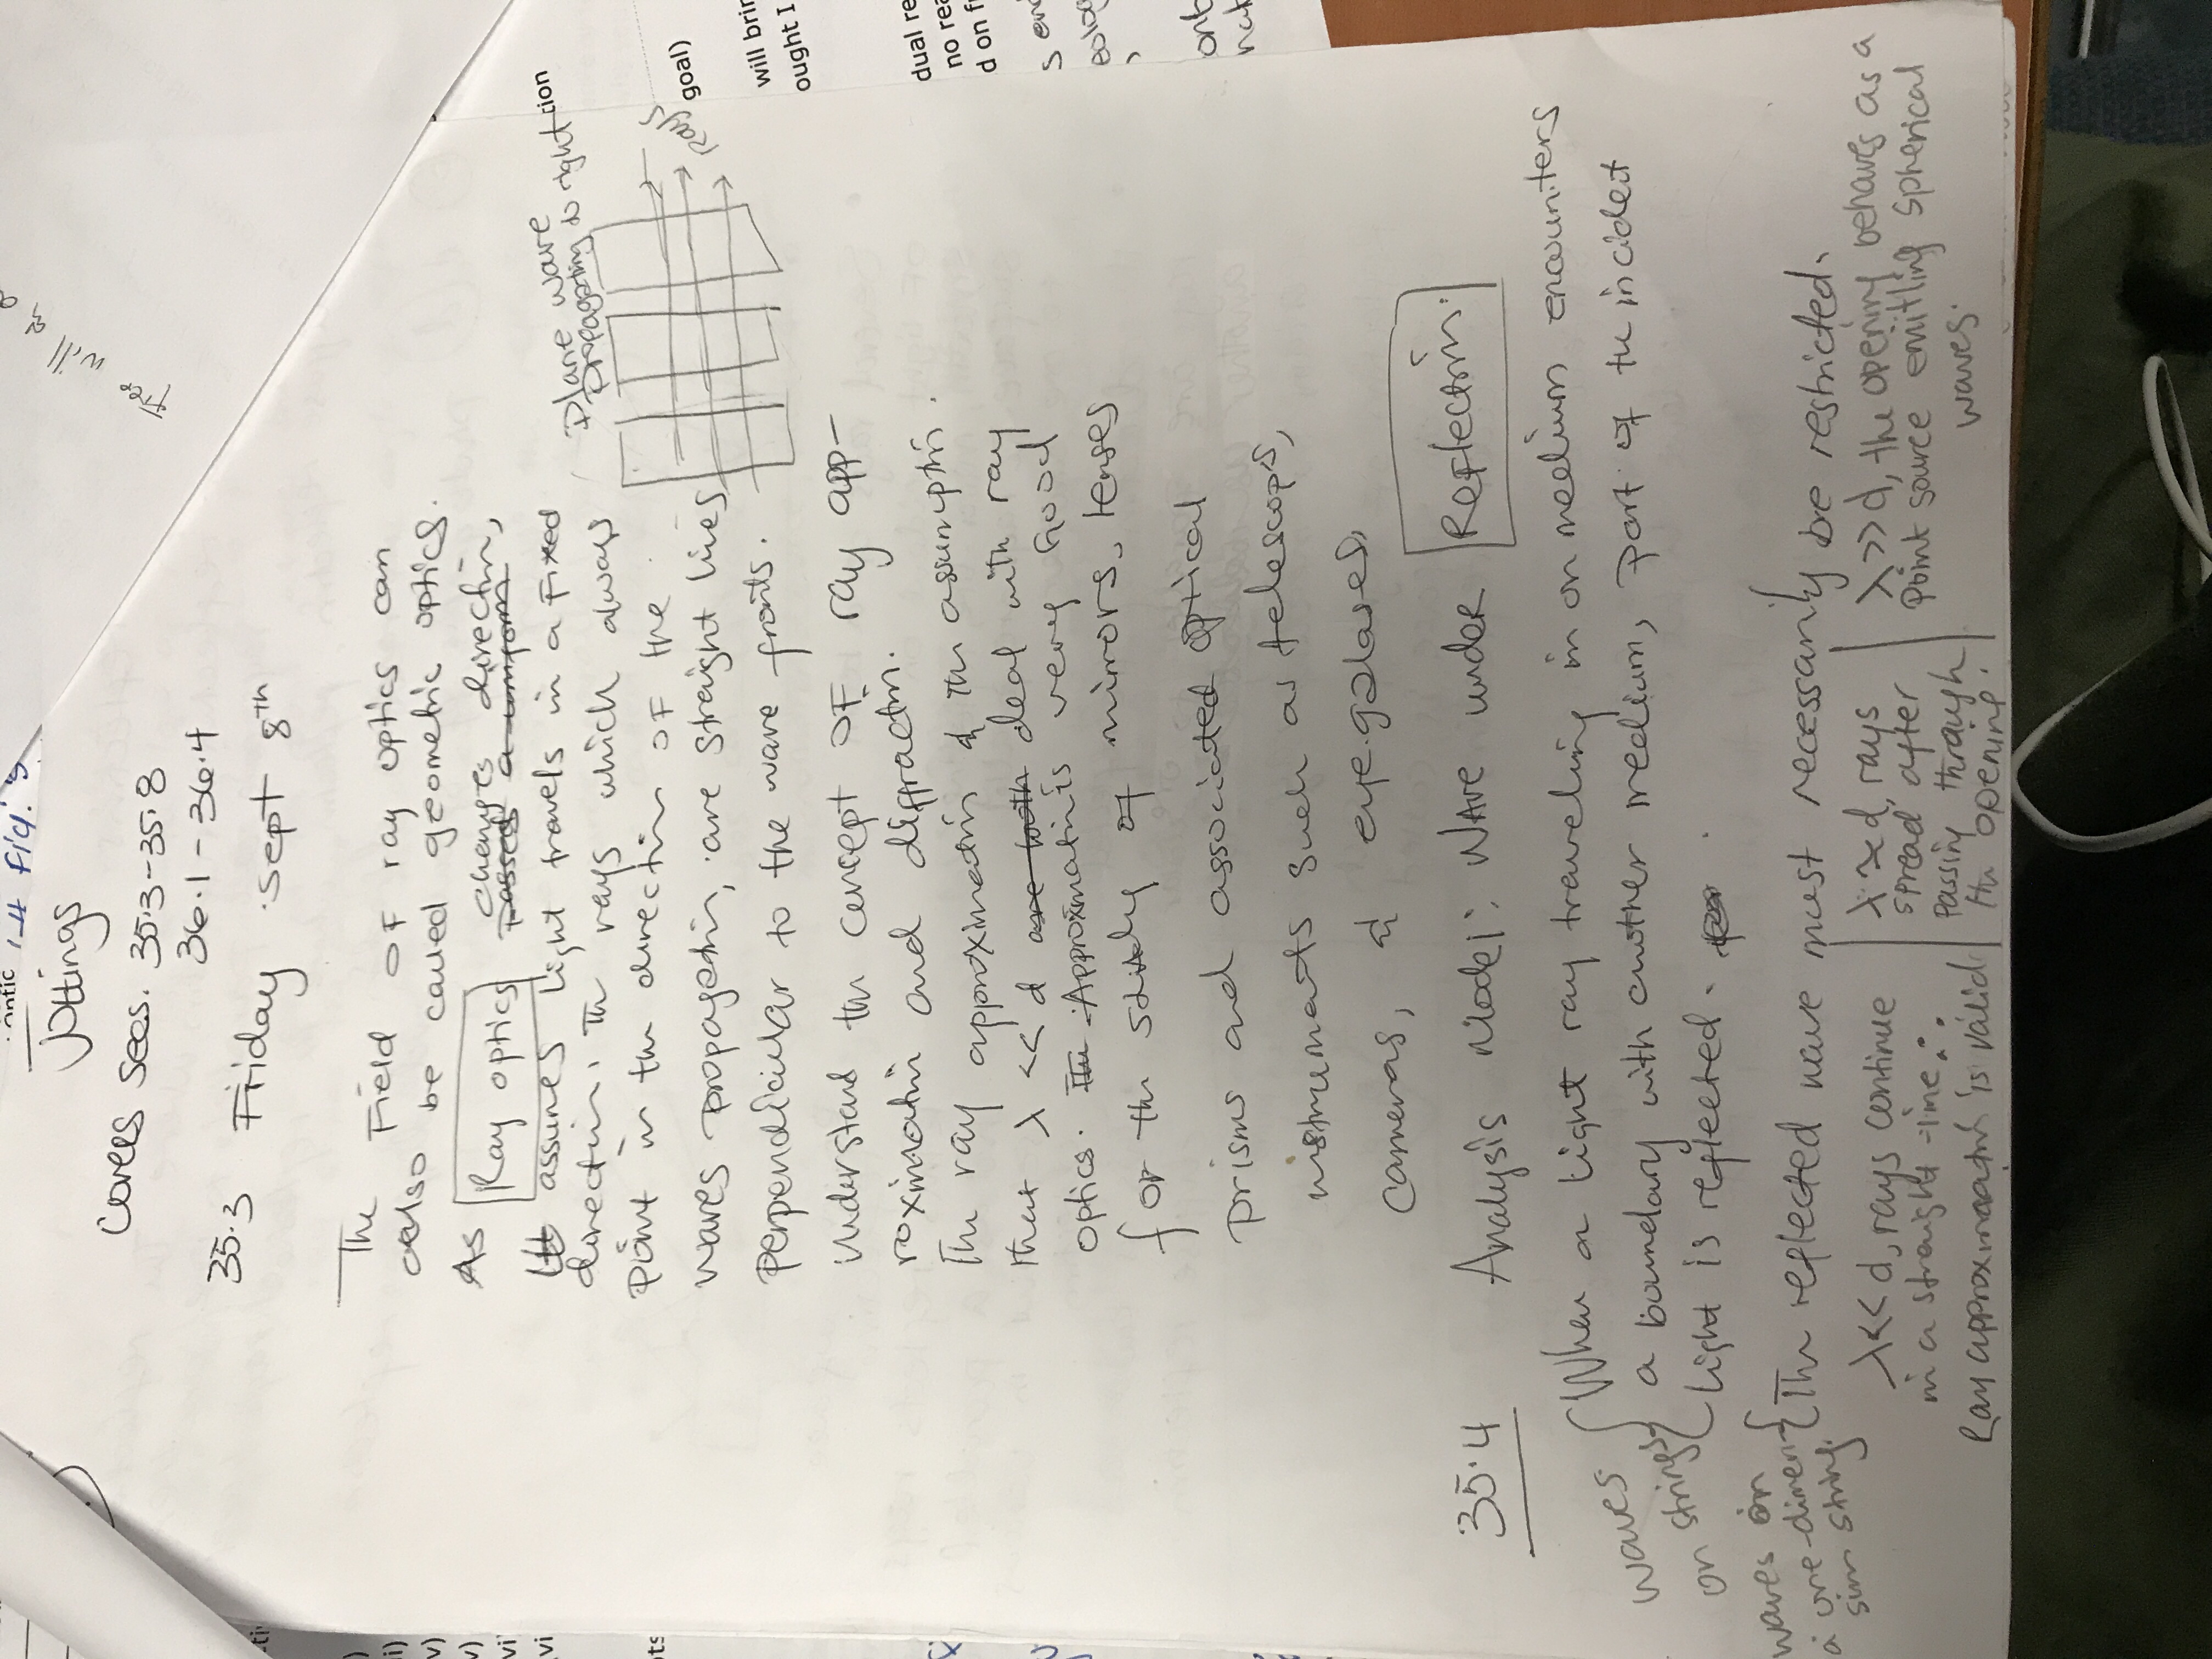 Jottings
Covers Secs. 35.3-35.8
36.1-36.4
35.3 Friday Sept 8th
The Field of ray optics can
also be called geometric optics.
As Ray optics changes direction,
assumes light travels in a fixed
direction. The rays which always
point in the direction of the
waves propagation, are straight lines
perpendicular to the wave fronts.
Plane wave
propagating to right
rays
understand the concept of ray app-
roximation and diffraction.
The ray approximation & the assumption
that λ << d are both deal with ray
optics. The Approximation is very Good
for the study of mirrors, lenses
prisms and associated optical
instruments such as telescops,
cameras, & eye.galsses,
35.4 Analysis Model: Wave under Reflection.
When a light ray traveling in on medium encounters
a boundary with another medium, part of the incident
light is reflected.
waves
on strings
The reflected wave must necessarily be restricted.
waves on
a one-dimen-
sion string.
λ<< d, rays continue
in a straight-line ∴
Ray approximation is valid.
λ≈d, rays
spread after
passing through
the opening.
λ>>d, the opening behaves as a
point source emitling spherical
waves.
goal)
will brin
ought I
dual re
no rea
d on fr